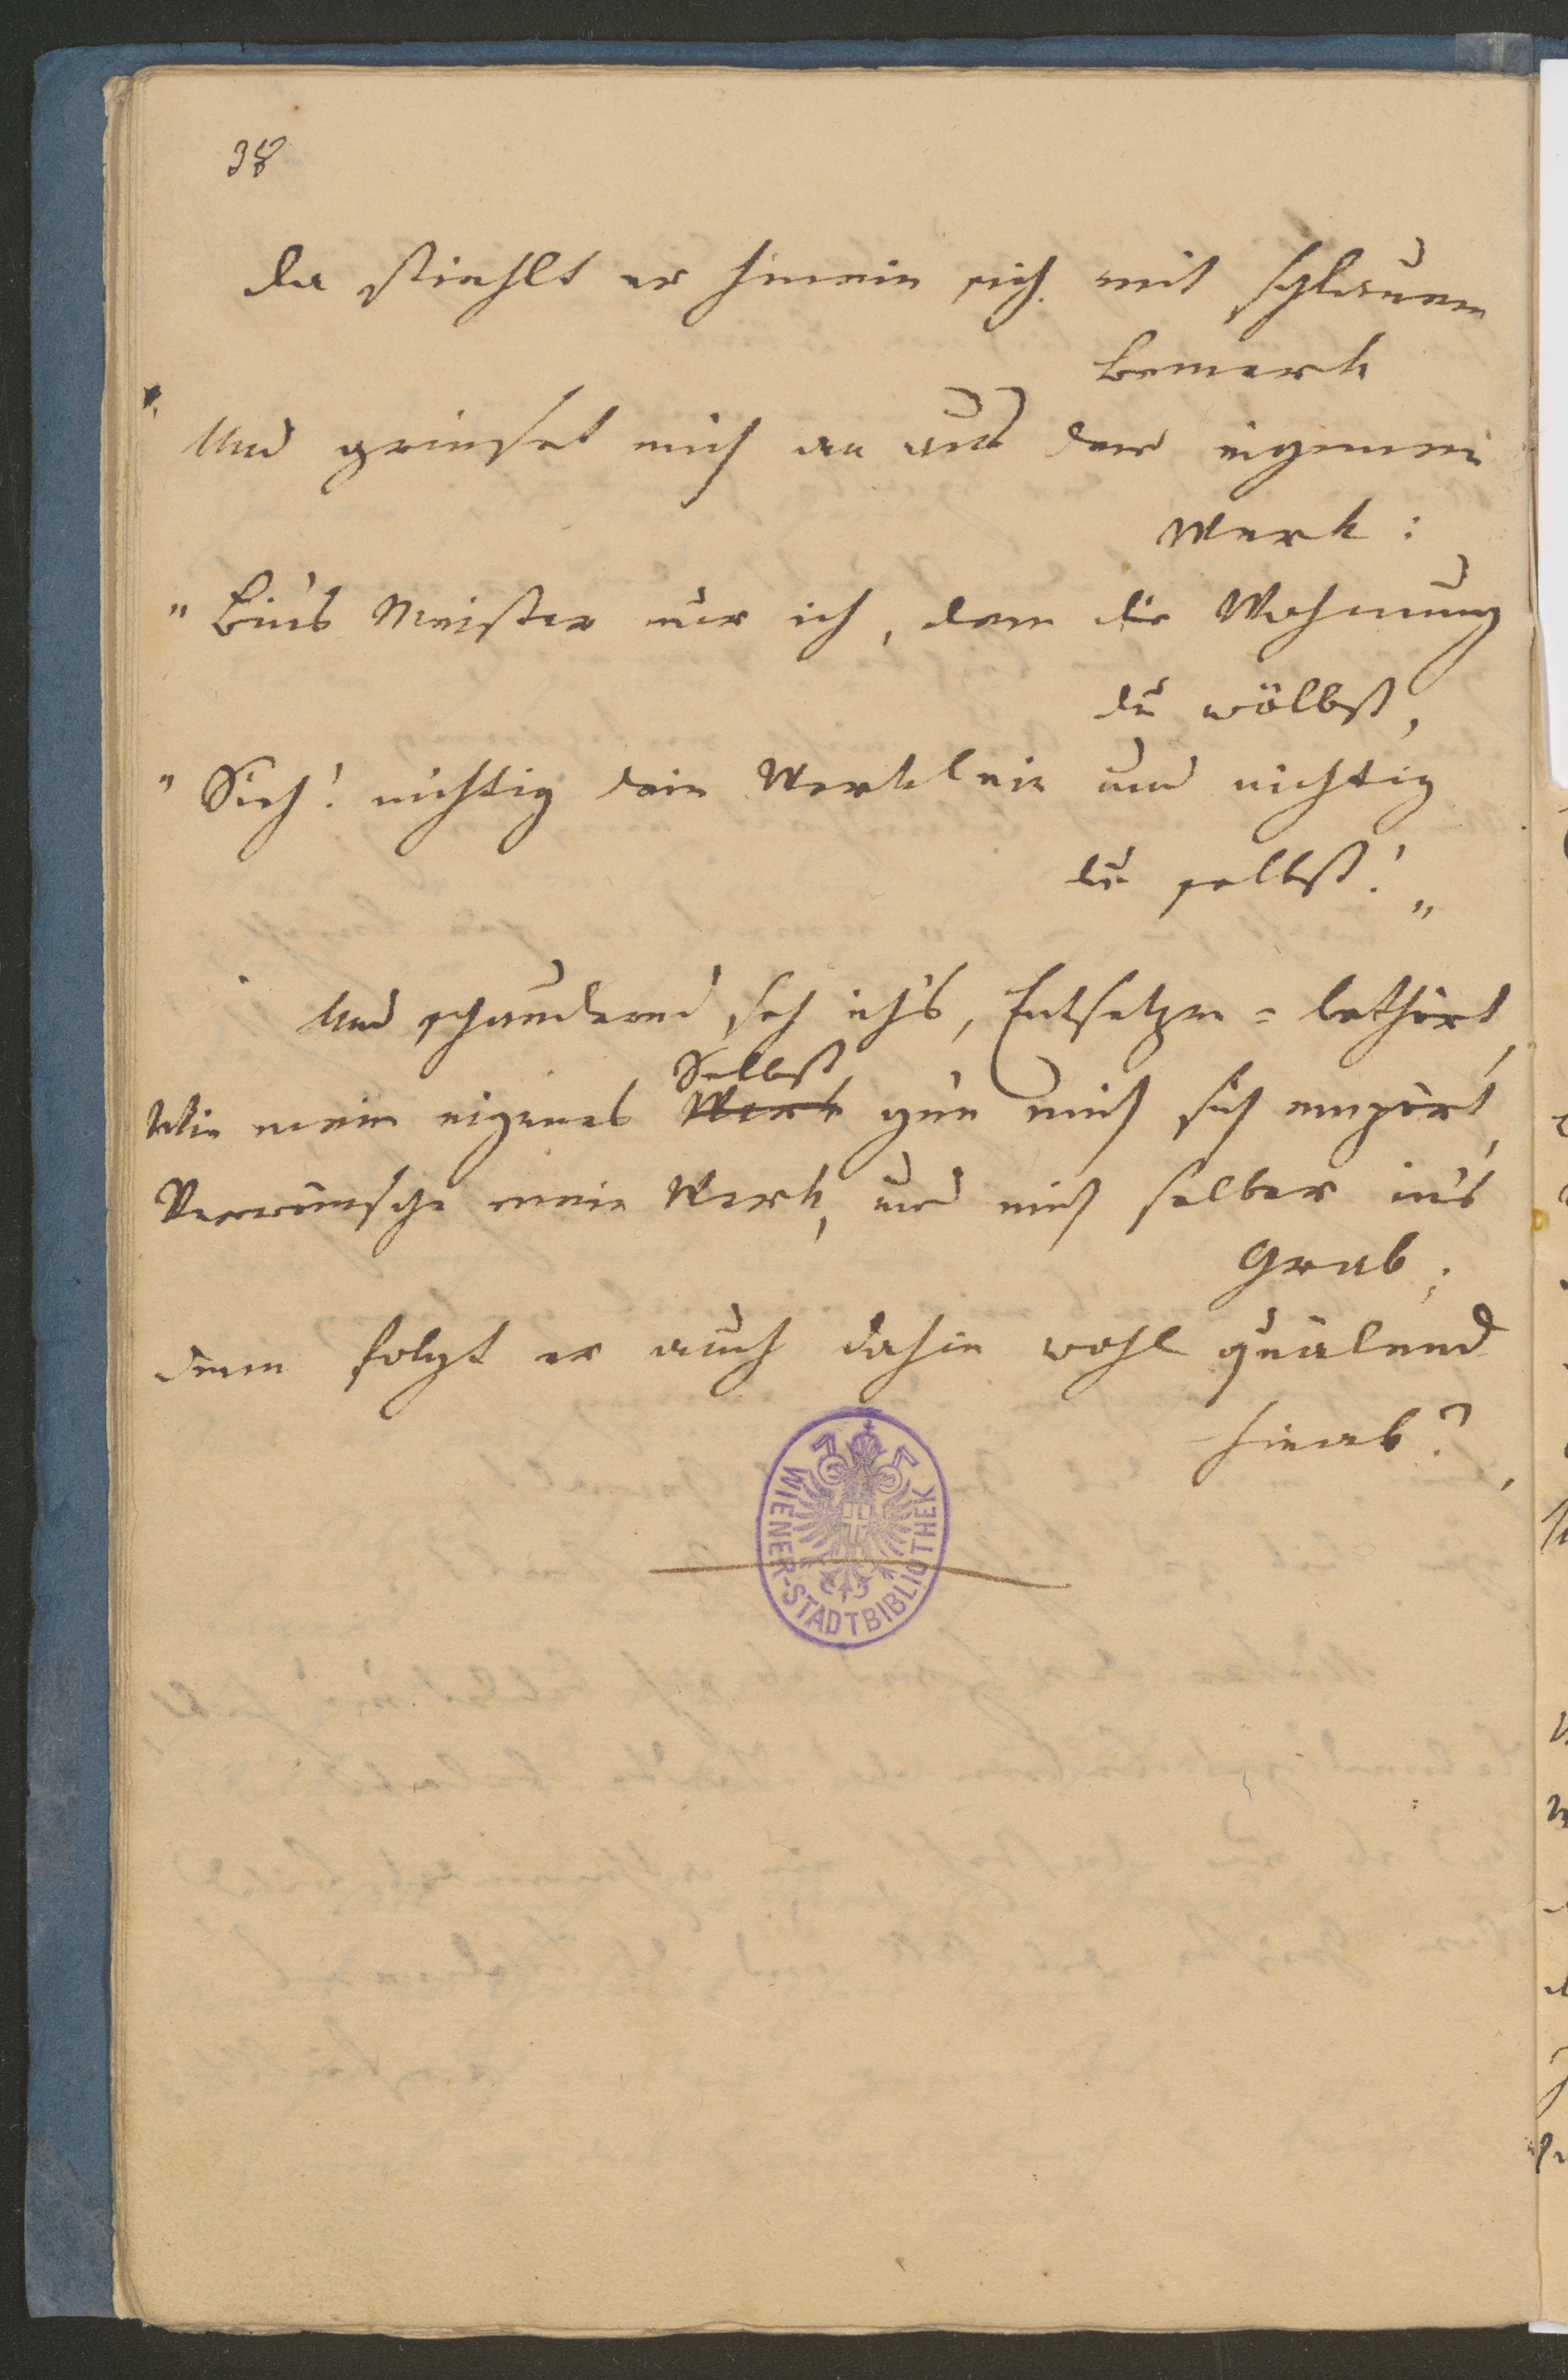 38
Da stiehlt er hinein sich mit schlauem
Bemerk
Und grinset mich an aus dem eigenen
Werk:
"Bin's Meister nur ich, dem die Wohnung
du wölbst,
"Sieh! nichtig dein Werklein und nichtig
du selbst!"
Und schaudernd seh ich's, Entsetzen = bethört,
Wie mein eigenes Werk gen mich sich empört,
Selbst
Verwünsche mein Werk, und mich selber in's
Grab;
Denn folgt er auch dahin wohl quälend
hinab?
WIENER-STADTBIBLIOTHEK